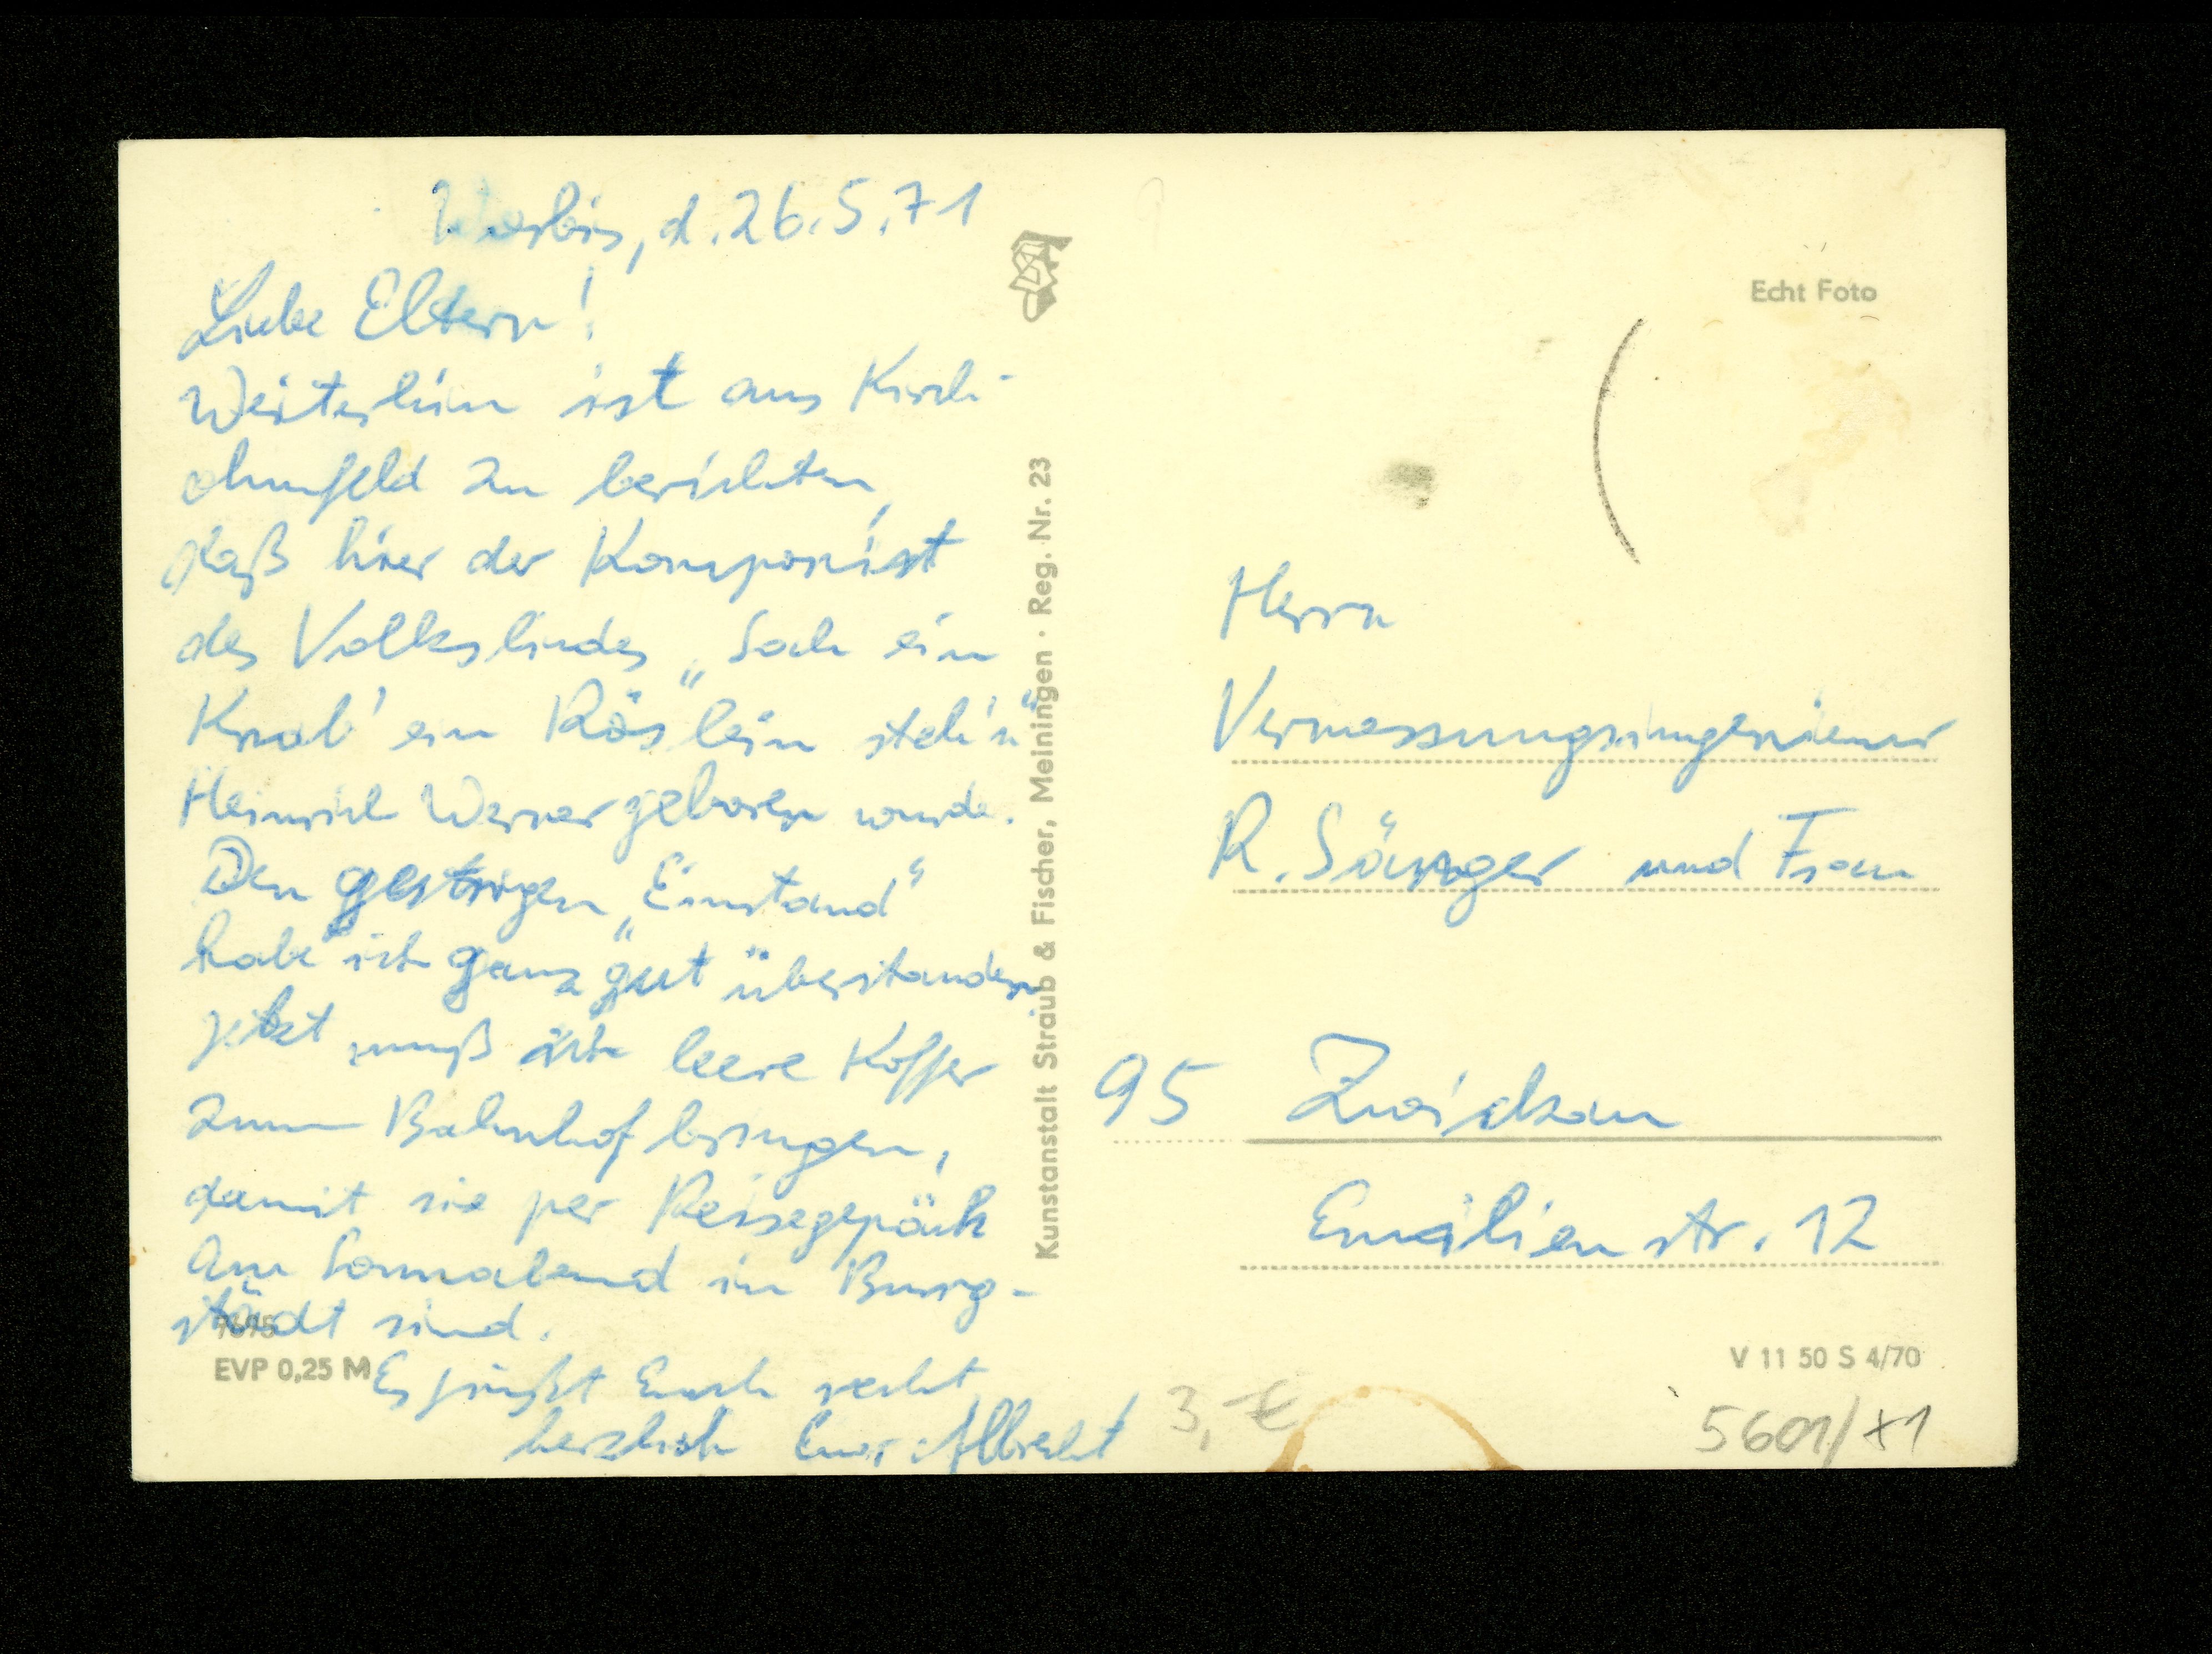 Worbis, d. 26.5.71
Liebe Eltern!
Weiterhin ist aus Kirch-
ohmfeld zu berichten,
daß hier der Komponist
des Volksliedes „Sah ein
Knab' ein Röslein steh'n"
Heinrich Werner geboren wurde.
Den gestrigen „Einstand"
habe ich ganz gut überstanden.
jetzt muß ich leere Koffer
zum Bahnhof bringen,
damit sie per Reisegepäck
am Sonnabend in Burg-
städt sind.
Es grüßt Euch recht
herzlich Euer Albrecht
EVP 0,25 M
Kunstanstalt Straub & Fischer, Meiningen · Reg. Nr. 23
Echt Foto
Herrn
Vermessungsingenieur
R. Sänger und Frau
95 Zwickau
Emilienstr. 12
V 11 50 S 4/70
3,-€
5601/